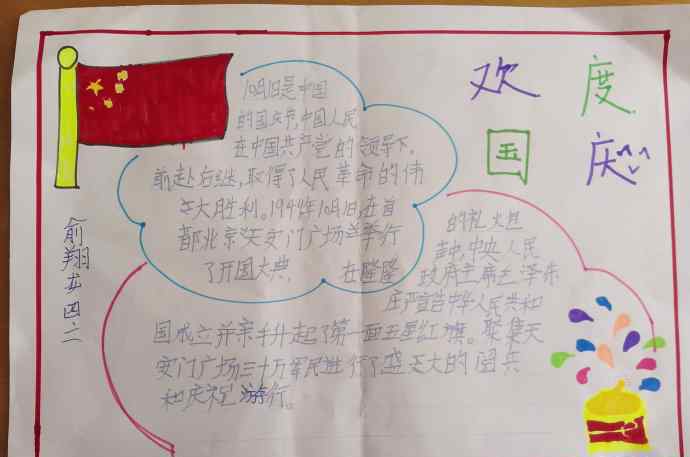 欢度
国庆
10月1日是中国
的国庆节,中国人民
在中国共产党的领导下,
前赴后继,取得了人民革命的伟
大胜利。1949年10月1日,在首
都北京天安门广场举行
了开国大典。在隆隆
的礼炮
声中,中央人民
政府主席毛泽东
庄严宣告中华人民共和
国成立并亲手升起了第一面五星红旗。聚集天
安门广场三十万军民进行了盛大的阅兵
和庆祝游行。
俞翔
四二